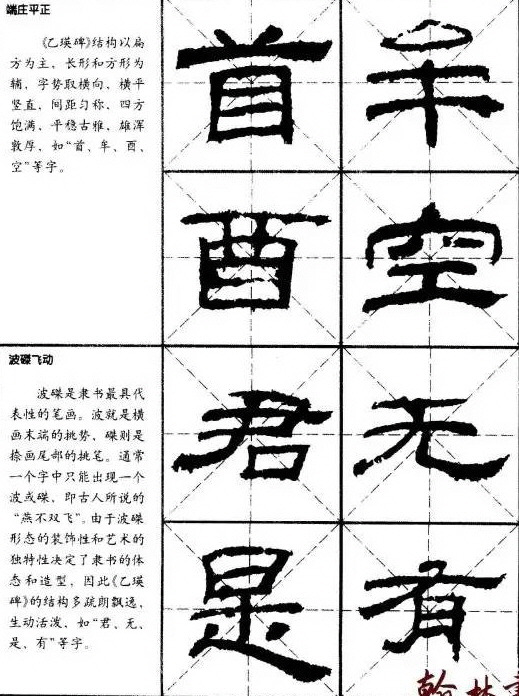 端庄平正
《乙瑛碑》结构以扁
方为主、长形和方形为
辅，字势取横向、横平
竖直、间距匀称、四方
饱满、平稳古雅、雄浑
敦厚，如“首、牟、酉、
空”等字。
首 牟
酉 空
波磔飞动
波磔是隶书最具代
表性的笔画。波就是横
画末端的挑势，磔则是
捺画尾部的挑笔。通常
一个字中只能出现一个
波或磔，即古人所说的
“燕不双飞”。由于波磔
形态的装饰性和艺术的
独特性决定了隶书的体
态和造型，因此《乙瑛
碑》的结构多疏朗飘逸，
生动活泼，如“君、无、
是、有”等字。
君 无
是 有
翰林